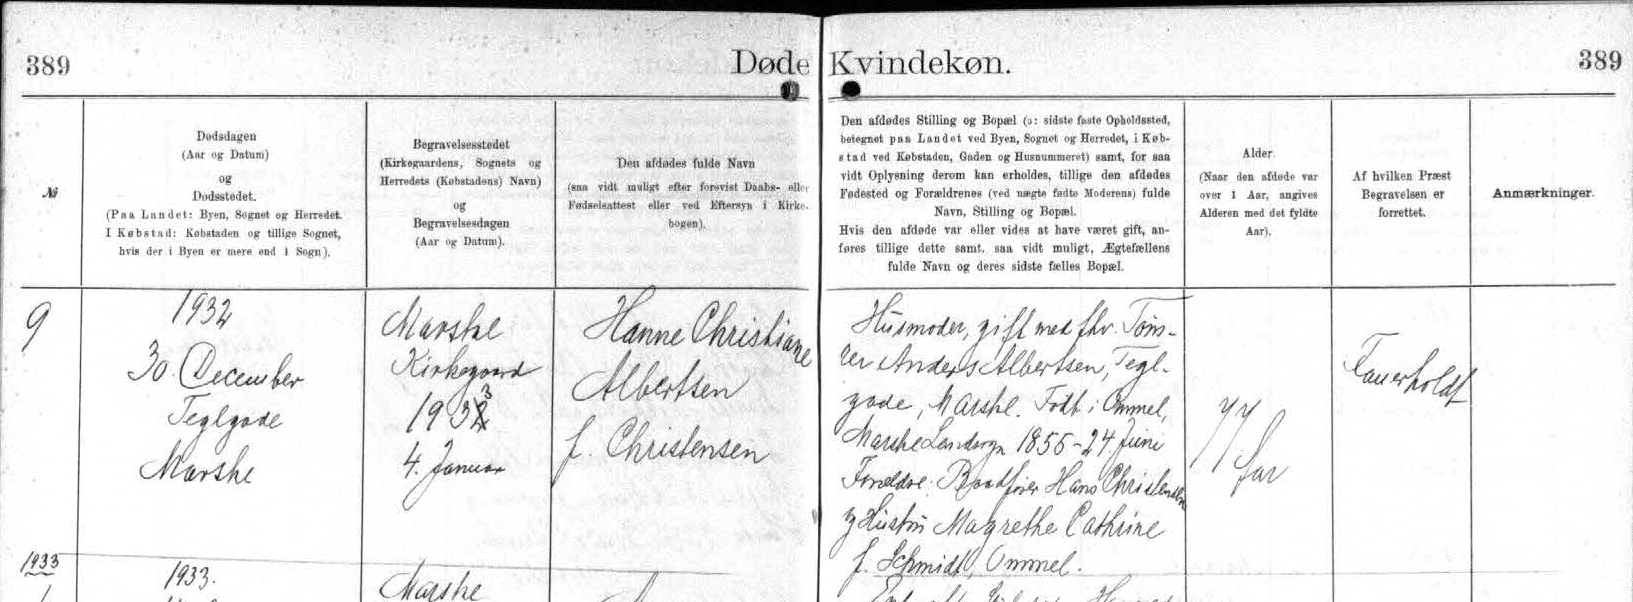 389
Døde Kvindekøn.
389
№
Dødsdagen
(Aar og Datum)
og
Dødsstedet.
(Paa Landet: Byen, Sognet og Herredet.
I Købstad: Købstaden og tillige Sognet,
hvis der i Byen er mere end 1 Sogn).
Begravelsesstedet
(Kirkegaardens, Sognets og
Herredets (Købstadens) Navn)
og
Begravelsesdagen
(Aar og Datum).
Den afdødes fulde Navn
(saa vidt muligt efter forevist Daabs- eller
Fødselsattest eller ved Eftersyn i Kirke-
bogen).
Den afdødes Stilling og Bopæl (ɔ: sidste faste Opholdssted,
betegnet paa Landet ved Byen, Sognet og Herredet, i Køb-
stad ved Købstaden, Gaden og Husnummeret) samt, for saa
vidt Oplysning derom kan erholdes, tillige den afdødes
Fødested og Forældrenes (ved uægte fødte Moderens) fulde
Navn, Stilling og Bopæl.
Hvis den afdøde var eller vides at have været gift, an-
føres tillige dette samt, saa vidt muligt, Ægtefællens
fulde Navn og deres sidste fælles Bopæl.
Alder.
(Naar den afdøde var
over 1 Aar, angives
Alderen med det fyldte
Aar).
Af hvilken Præst
Begravelsen er
forrettet.
Anmærkninger.
9
1932
30. December
Teglgade
Marske
Marske
Kirkegaard
1933
4. Januar
Hanne Christiane
Albertsen
f. Christensen
Husmoder, gift med fhv. Tøm-
rer Anders Albertsen, Tegl-
gade, Marstal. Født i Ommel,
Marstal Landsogn 1855 - 24 Juni
Forældre: Baadfører Hans Christensen
og Hustru Magrethe Cathrine
f. Schmidt, Ommel.
77
Aar
Fauerholdt
1933
1933.
Marske